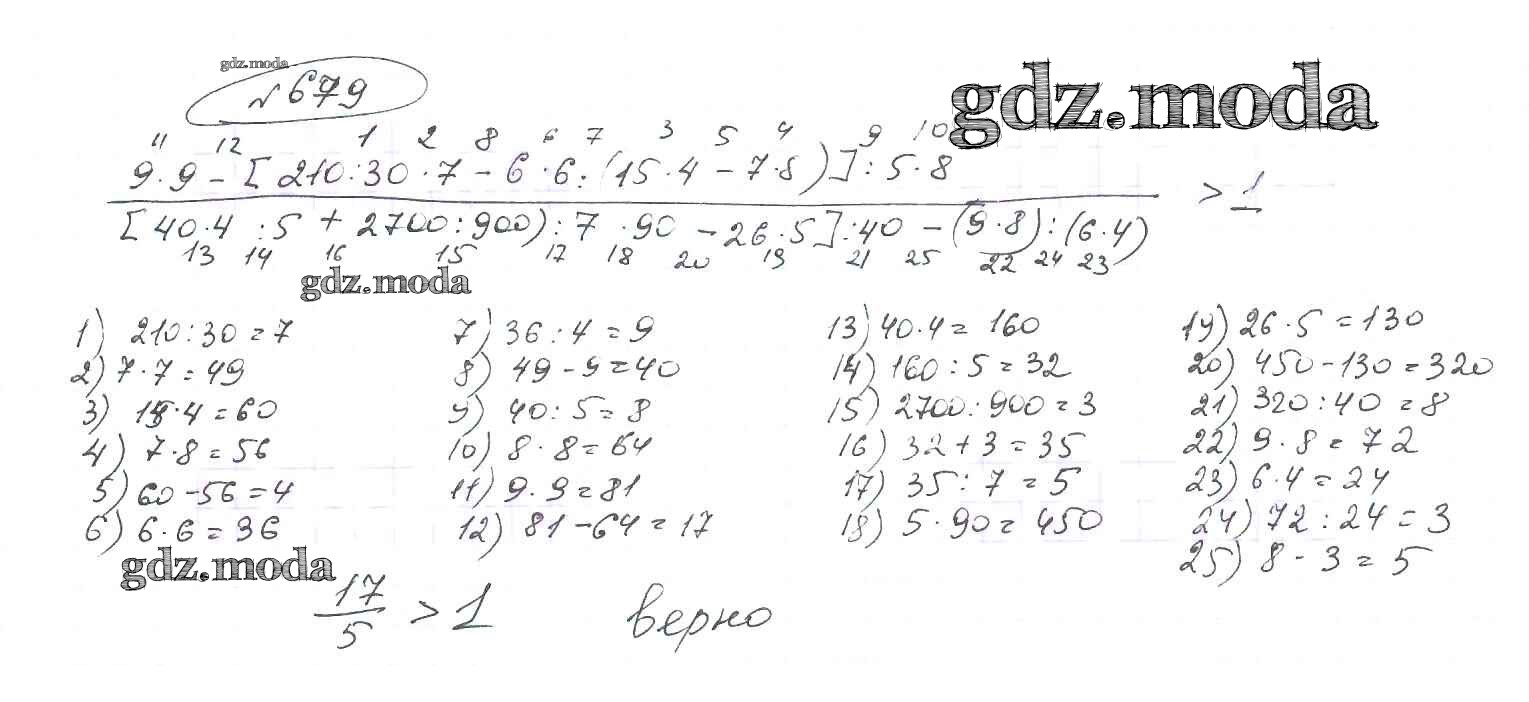 gdz.moda
№679
gdz.moda
11 12 1 2 8 6 7 3 5 4 9 10
9·9 - [210:30·7 - 6·6:(15·4 - 7·8)]:5·8
> 1
[40·4 :5 + 2700:900):7 ·90 - 26·5]:40 - (9·8):(6·4)
13 14 16 15 17 18 20 19 21 25 22 24 23
gdz.moda
1) 210:30=7
2) 7·7=49
3) 15·4=60
4) 7·8=56
5) 60-56=4
6) 6·6=36
7) 36:4=9
8) 49-9=40
9) 40:5=8
10) 8·8=64
11) 9·9=81
12) 81-64=17
13) 40·4=160
14) 160:5=32
15) 2700:900=3
16) 32+3=35
17) 35:7=5
18) 5·90=450
19) 26·5=130
20) 450-130=320
21) 320:40=8
22) 9·8=72
23) 6·4=24
24) 72:24=3
25) 8-3=5
gdz.moda
17
5
> 1 верно